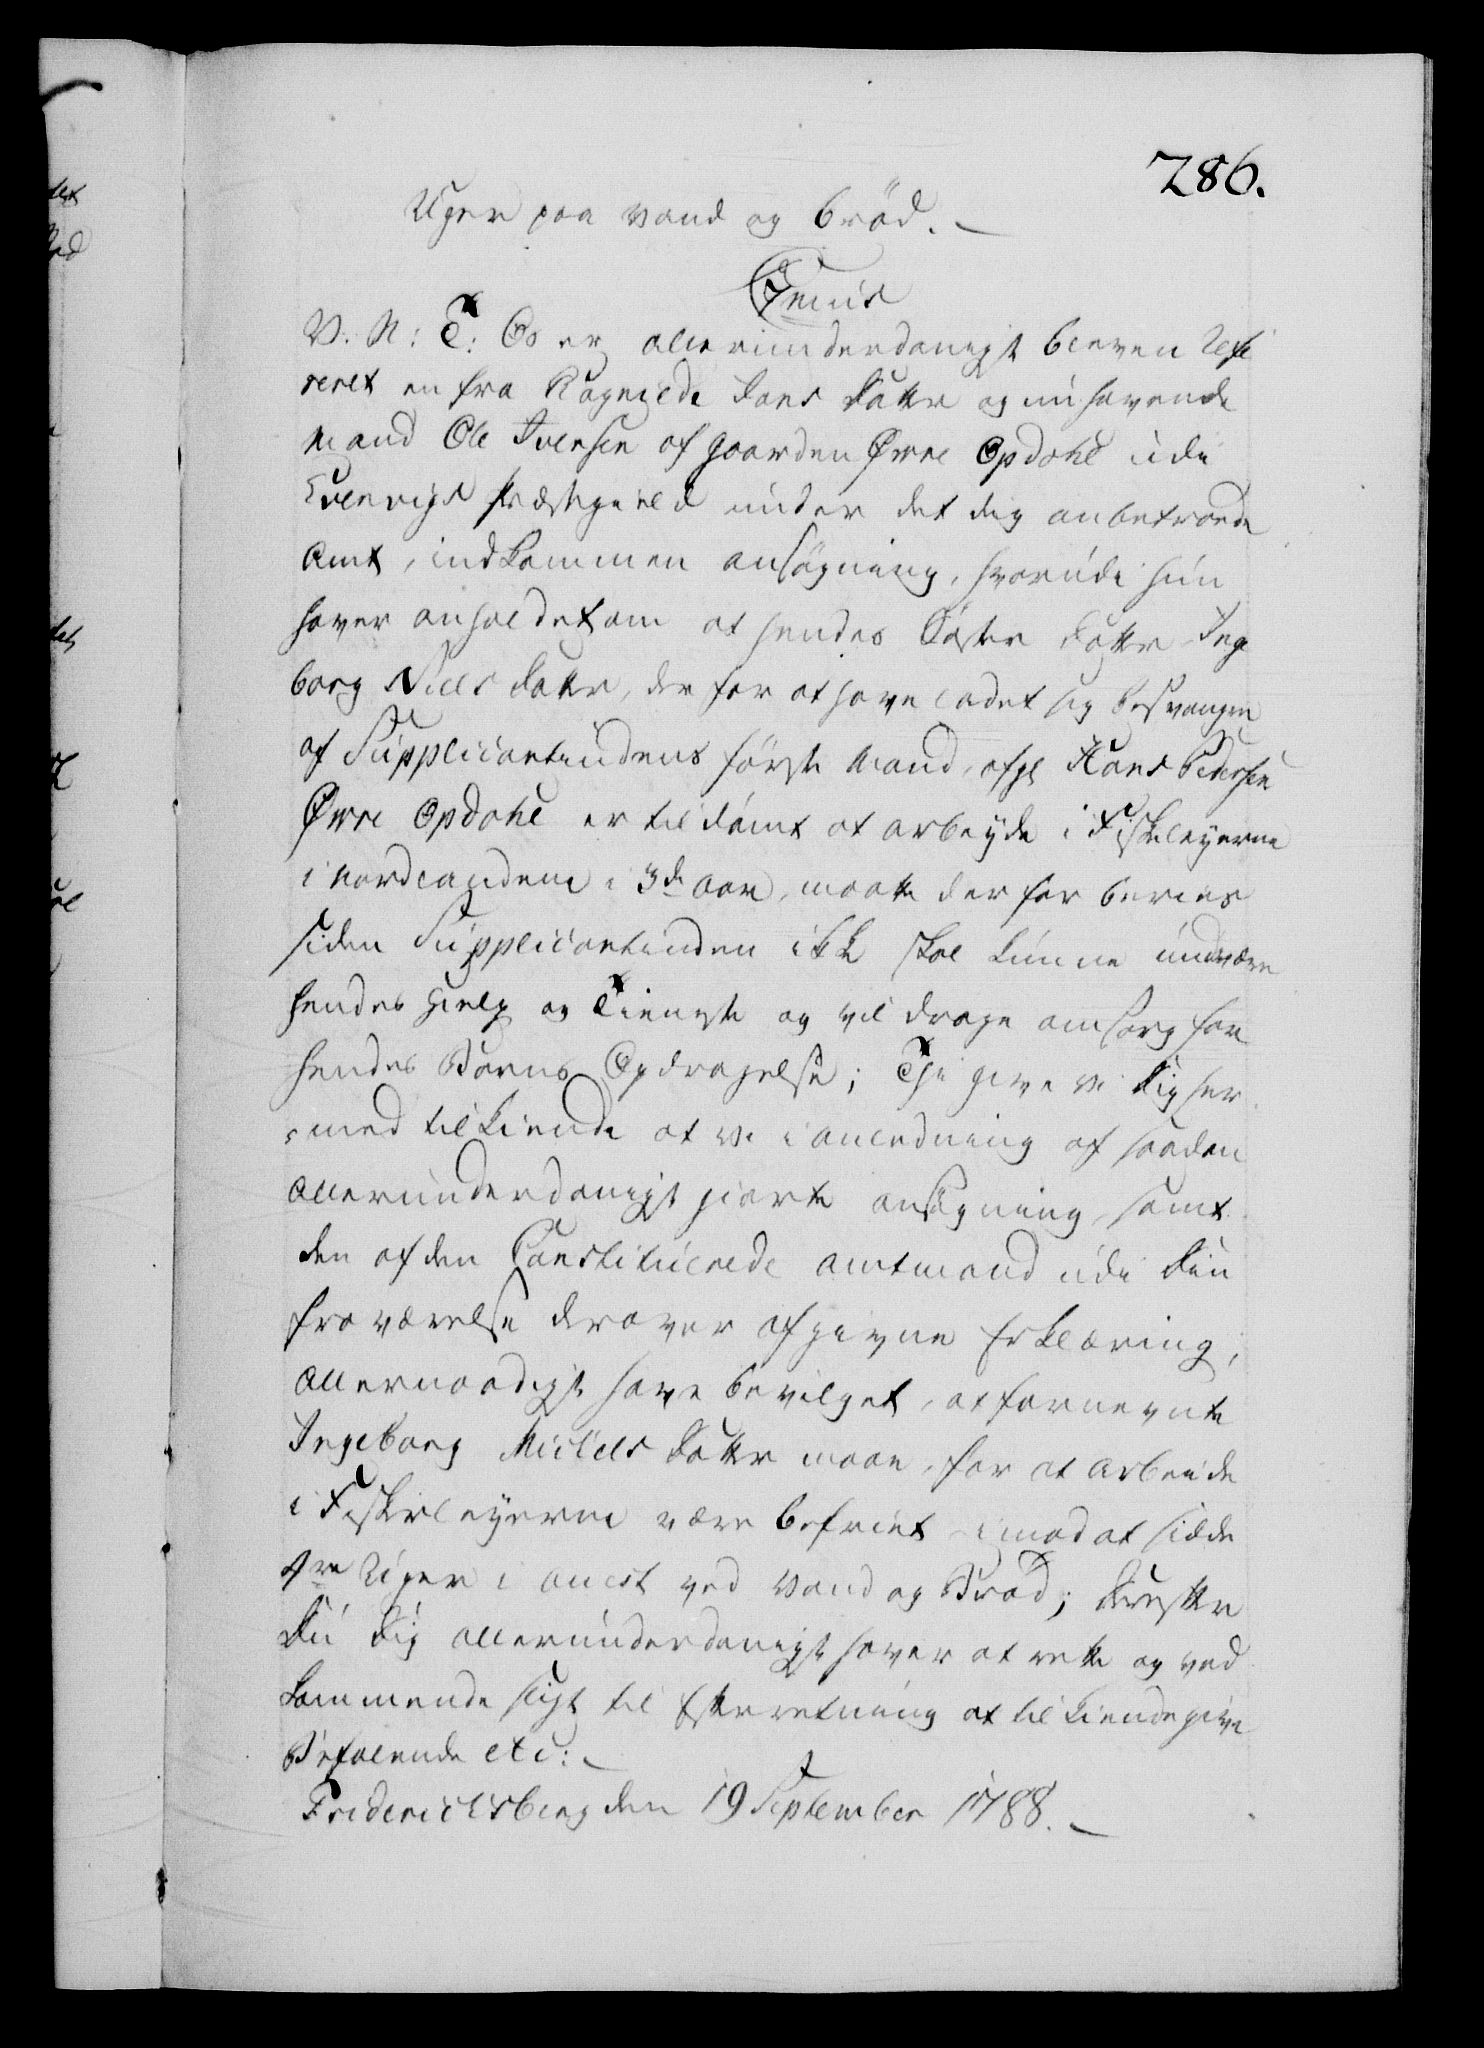 286.
Uger paa vand og brød.
C7mus
V. N: T: Os er allerunderdanigst bleven Refe
reret en fra Ragnilde Hans datter og nuhavende
mand Ole Iversen af gaarden Øvre Opdahl udi
Evenvigs Præstegield under det dig anbetroede
Amt, indkommen ansøgning, hvorudi hun
haver anholdet om at hendes Søster datter Inge
borg Niels datter, der for at have ladet sig besvangre
af Supplicantindens første Mand, afgl Hans Pedersen
Øvre Opdahl er til dømt at arbeyde i Fiskeleyerne
i Nordlandene i 3de Aar, maatte derfor beries
siden Supplicantinden ikke skal kunne undvære
hendes Hielp og Tieneste og vil drage omsorg for
hendes Barns Opdragelse; Thi give vi dig her
med tilkiende at vi i anledning af saadan
allerunderdanigst giorte ansøgning, samt
den af den Constituerede amtmand udi din
fraværelse derover afgivne Erklæring,
allernaadigst have bevilget, at fornevnte
Ingeborg Michels datter maae, for at arbeide
i Fiskeleyerne være befriet imod at sidde
4re Uger i anest ved Vand og Brød; derefter
du dig allerunderdanigst haver at rette og ved
kommende sligt til Efterretning at tilkiendegive
Befalende etc:
Friderichsberg den 19 September 1788.